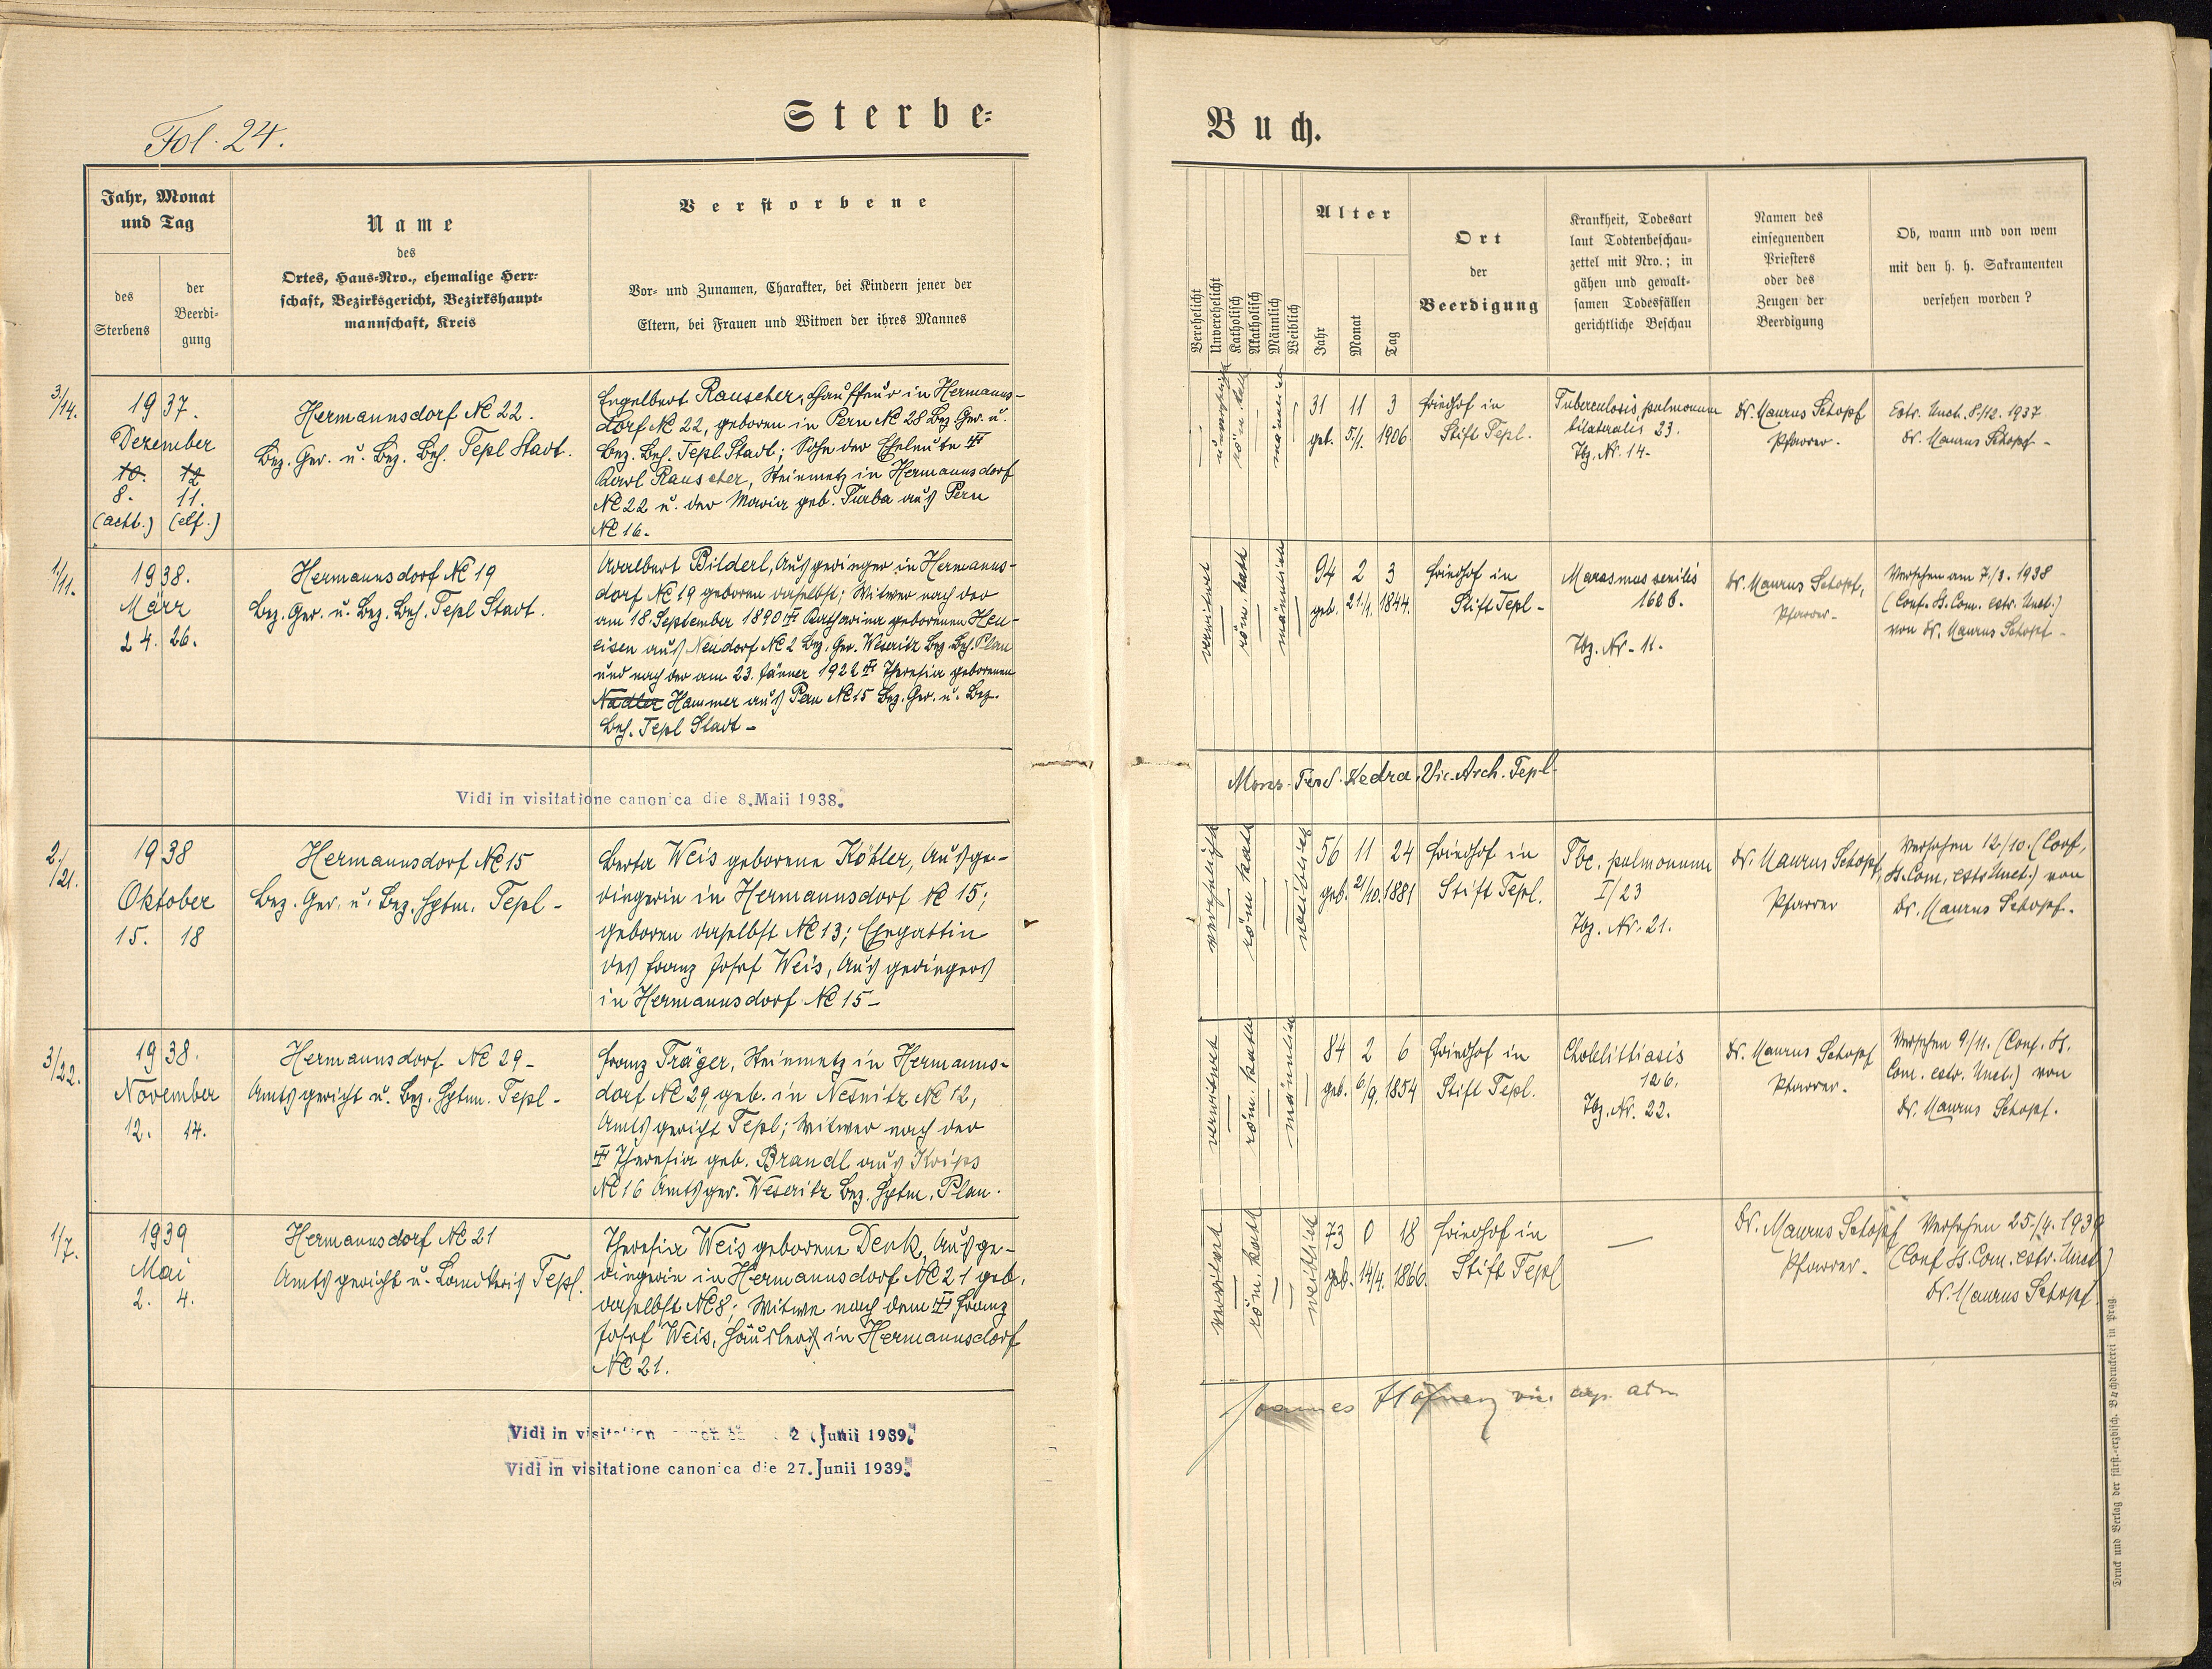 Fol. 24.
Sterbe-
Buch.
Jahr, Monat
und Tag
des
Sterbens
der
Beerdi-
gung
Name
des
Ortes, Haus-Nro., ehemalige Herr-
schaft, Bezirksgericht, Bezirkshaupt-
mannschaft, Kreis
Verstorbene
Vor- und Zunamen, Charakter, bei Kindern jener der
Eltern, bei Frauen und Witwen der ihres Mannes
Verehelicht
Unverehelicht
Katholisch
Akatholisch
Männlich
Weiblich
Alter
Jahr
Monat
Tag
Ort
der
Beerdigung
Krankheit, Todesart
laut Todtenbeschau-
zettel mit Nro.; in
gähen und gewalt-
samen Todesfällen
gerichtliche Beschau
Namen des
einsegnenden
Priesters
oder des
Zeugen der
Beerdigung
Ob, wann und von wem
mit den h. h. Sakramenten
versehen worden?
3/14.
1937.
Dezember
10. 12
8. 11.
(acht.) (elf.)
Hermannsdorf № 22.
Bez. Ger. u. Bez. Beh. Tepl Stadt.
Engelbert Rauscher, Chauffeur in Hermanns-
dorf № 22, geboren in Pern № 28 Bez. Ger. u.
Bez. Beh. Tepl Stadt; Sohn der Eheleute ✠
Karl Rauscher, Steinmetz in Hermannsdorf
№ 22 u. der Maria geb. Turba aus Pern
№ 16.
unverehelicht
röm. kath
männlich
31 11 3
geb. 5/1. 1906
Friedhof in
Stift Tepl.
Tuberculosis pulmonum
bilateralis 23.
Tbz. Nr. 14.
Dr. Maurus Schopf
Pfarrer.
Extr. Unct. 8/12. 1937
Dr. Maurus Schopf -
1/11.
1938.
März
24. 26.
Hermannsdorf № 19
Bez. Ger. u. Bez. Beh. Tepl Stadt.
Adalbert Bilderl, Ausgedinger in Hermanns-
dorf № 19 geboren daselbst; Witwer nach der
am 18. September 1890 ✠ Katharina geborenen Heu-
eisen aus Neudorf № 2 Bez. Ger. Weseritz Bez. Beh. Plan
und nach der am 23. Jänner 1922 ✠ Theresia geborenen
Nadler Hammer aus Pern № 15 Bez. Ger. u. Bez.
Beh. Tepl Stadt -
verwitwet
röm. kath
männlich
94 2 3
geb. 21/1. 1844.
Friedhof in
Stift Tepl -
Marasmus senilis
162 b.
Tbz. Nr. 11.
Dr. Maurus Schopf,
Pfarrer -
Versehen am 7./3. 1938
(Conf. St. Com. extr. Unct.)
von Dr. Maurus Schopf -
Vidi in visitatione canonica die 8. Maii 1938.
Vic. Arch. Tepl-
2./21.
1938
Oktober
15. 18
Hermannsdorf № 15
Bez. Ger. u. Bez. Hptm. Tepl -
Berta Weis geborene Köhler, Ausge-
dingerin in Hermannsdorf № 15;
geboren daselbst № 13; Ehegattin
des Franz Josef Weis, Ausgedingers
in Hermannsdorf № 15 -
verehelicht
röm kath
weiblich
56 11 24
geb. 21/10. 1881
Friedhof in
Stift Tepl.
Tbc. pulmonum
I/23
Tbz. Nr. 21.
Dr. Maurus Schopf,
Pfarrer
Versehen 12/10. (Conf,
St. Com, extr Unct.) von
Dr. Maurus Schopf.
3/22.
1938.
November
12. 14.
Hermannsdorf № 29 -
Amtsgericht u. Bez. Hptm. Tepl -
Franz Träger, Steinmetz in Hermanns-
dorf № 29, geb. in Nesnitz № 12,
Amtsgericht Tepl; Witwer nach der
✠ Theresia geb. Brandl aus Krips
№ 16 Amtsger. Weseritz Bez. Hptm. Plan.
verwitwet
röm. kath
männlich
84 2 6
geb. 6/9. 1854
Friedhof in
Stift Tepl.
Cholelittiasis
126.
Tbz. Nr. 22.
Dr. Maurus Schopf
Pfarrer.
Versehen 9/11. (Conf. St.
Com. extr. Unct.) von
Dr. Maurus Schopf.
1/7.
1939
Mai
2. 4.
Hermannsdorf № 21
Amtsgericht u. Landkreis Tepl.
Theresia Weis geborene Denk, Ausge-
dingerin in Hermannsdorf № 21 geb.
daselbst № 8; Witwe nach dem ✠ Franz
Josef Weis, Häuslers in Hermannsdorf
№ 21.
verwitwet
röm. kath
weiblich
73 0 18
geb. 14/4. 1866.
Friedhof in
Stift Tepl
—
Dr. Maurus Schopf
Pfarrer.
Versehen 25./4. 1939
(Conf St. Com. extr. Unct)
Dr. Maurus Schopf.
Vidi in visitation 2 Junii 1939.
Vidi in visitatione canonica die 27. Junii 1939.
Joannes
Druck und Verlag der fürst.-erzbisch. Buchdruckerei in Prag.